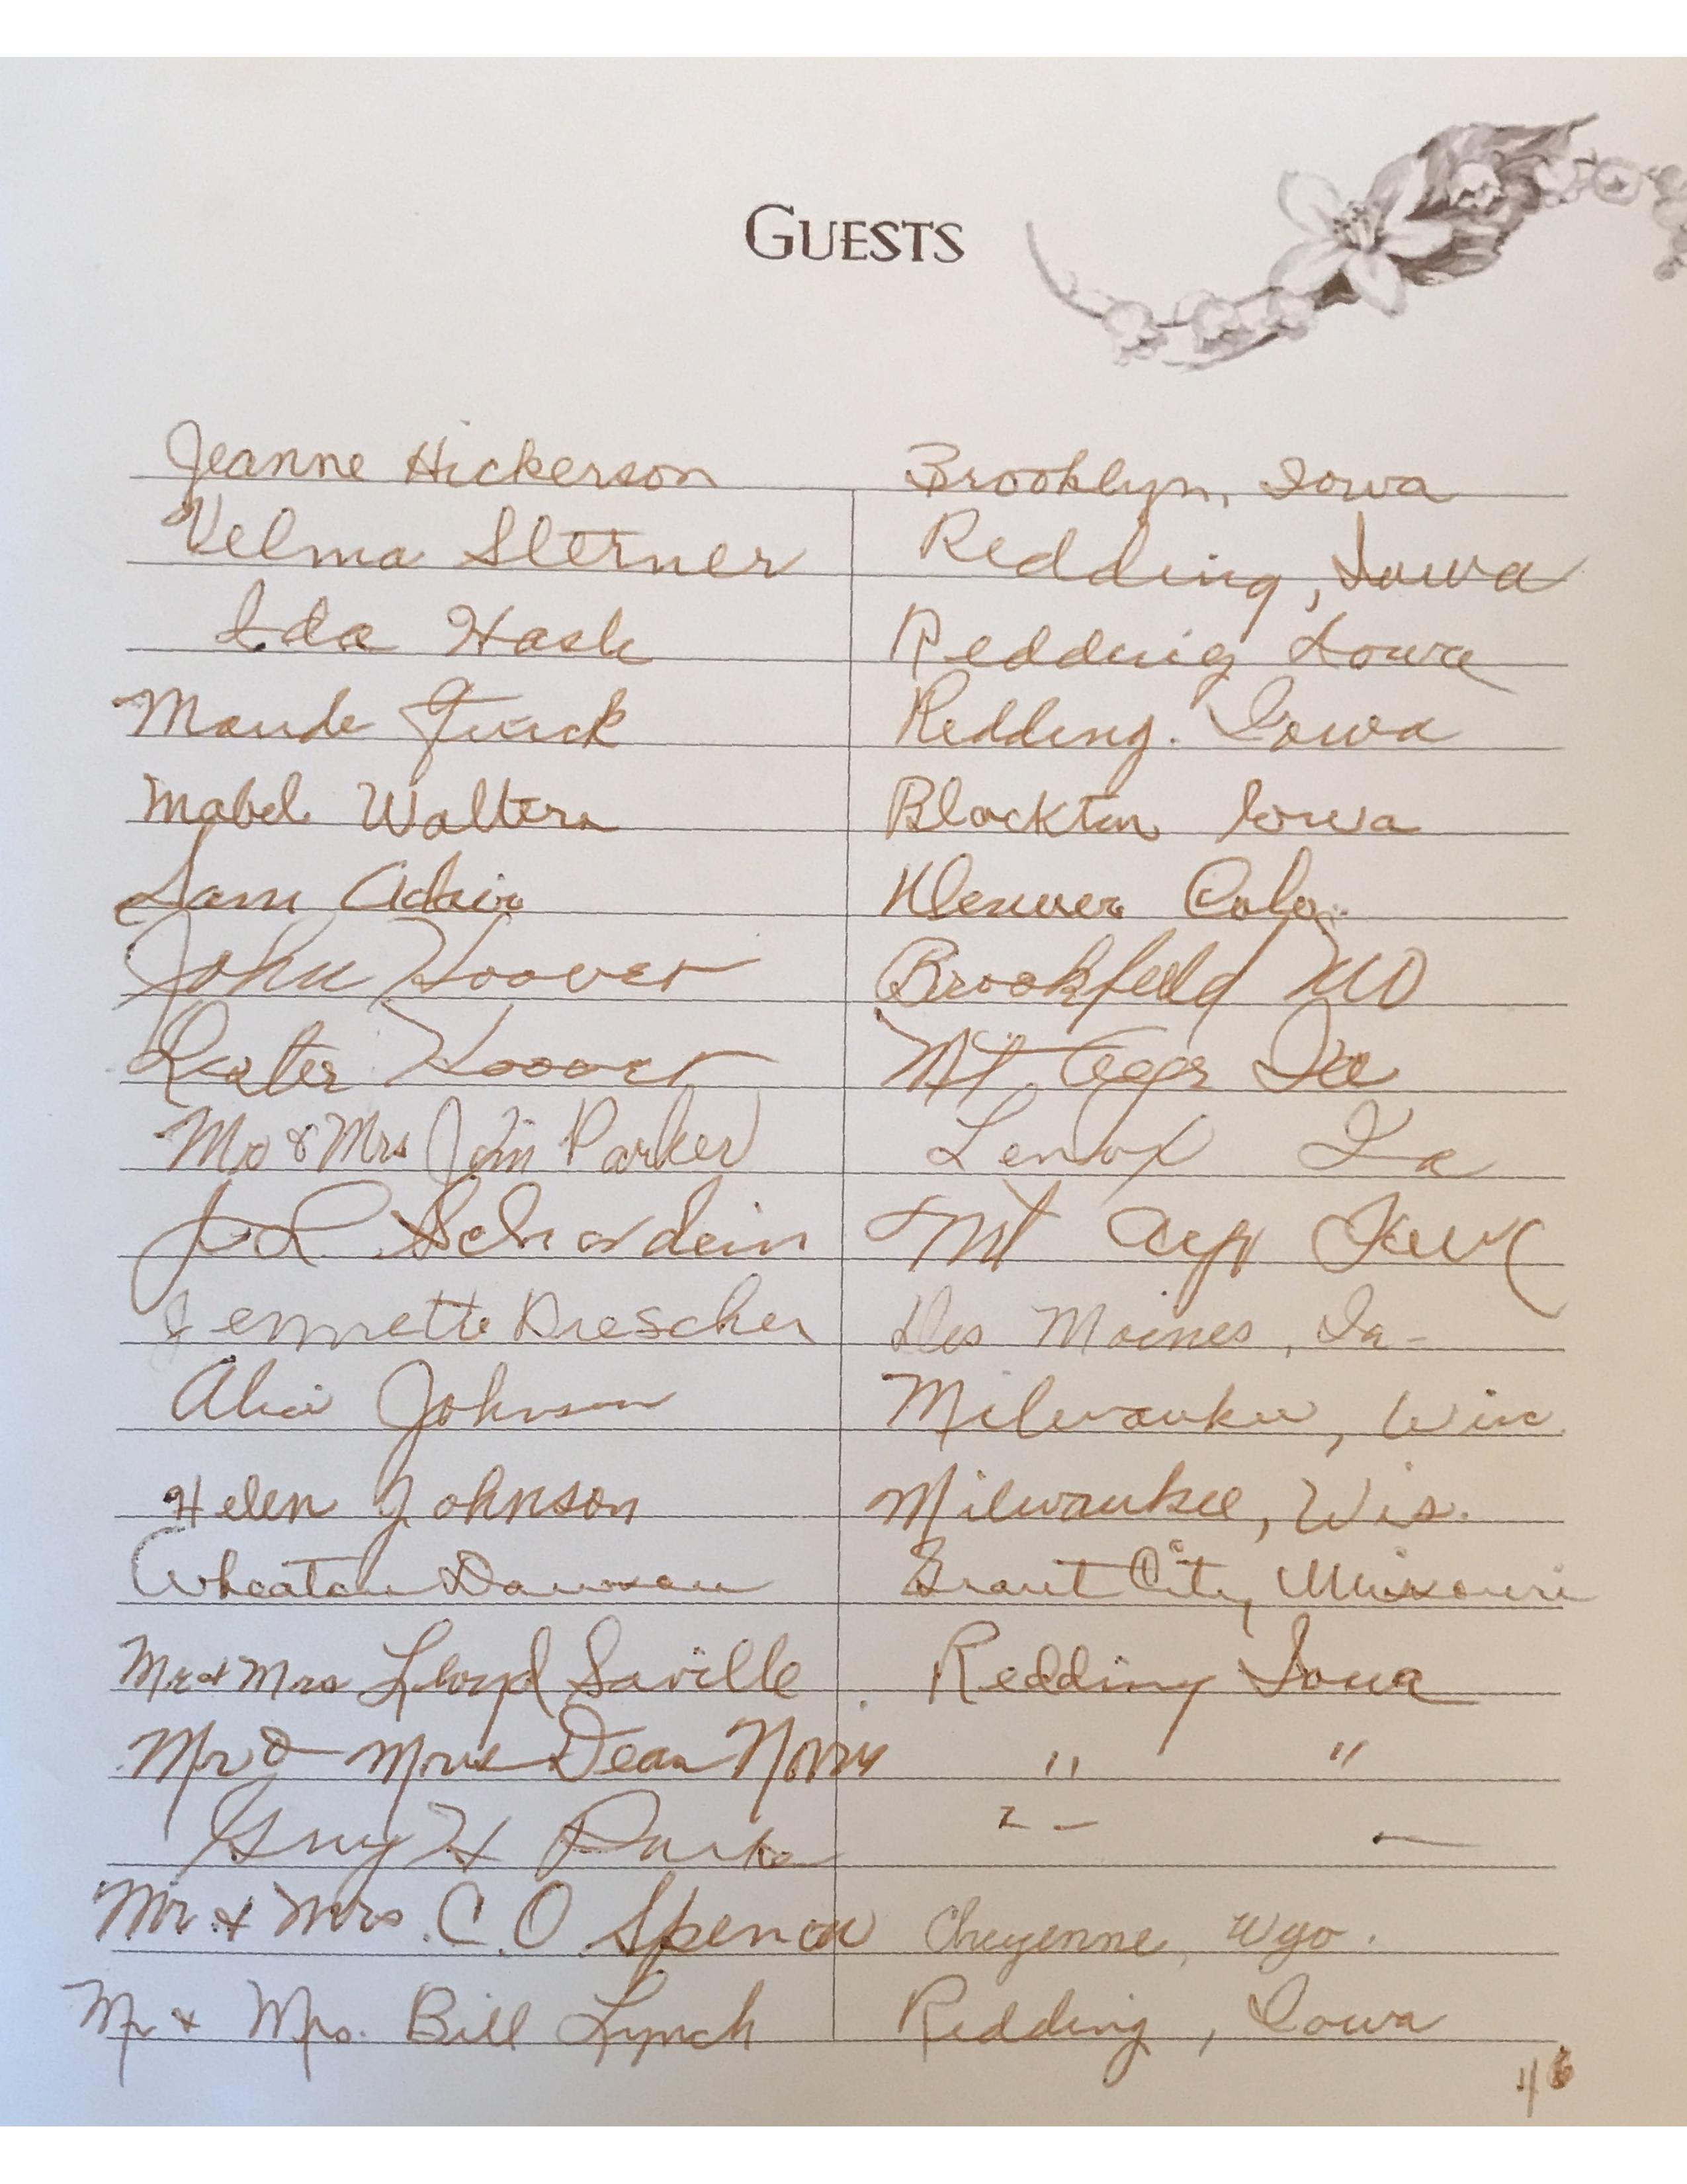 GUESTS
Jeanne Hickerson Brooklyn, Iowa
Velma Sterner Redding, Iowa
Ida Hask Redding Iowa
Maude Redding. Iowa
Mabel Walters Blockton Iowa
Sam Adair Denver Colo.
John Hoover Brookfield MO
Lester Hoover Mt. Ayr Ia
Mr & Mrs Jim Parker Lenox Ia
J L Schardein Mt Ayr Iowa
Jennette Drescher Des Moines, Ia-
Alice Johnson Milwaukee, Wis
Helen Johnson Milwaukee, Wis.
Wheaton Dawson Grant City, Missouri
Mr + Mrs Lloyd Saville Redding Iowa
Mr & Mrs Dean Norris " "
Guy H Parker
Mr & Mrs. C. O. Spencer Cheyenne, Wyo.
Mr & Mrs. Bill Lynch Redding, Iowa